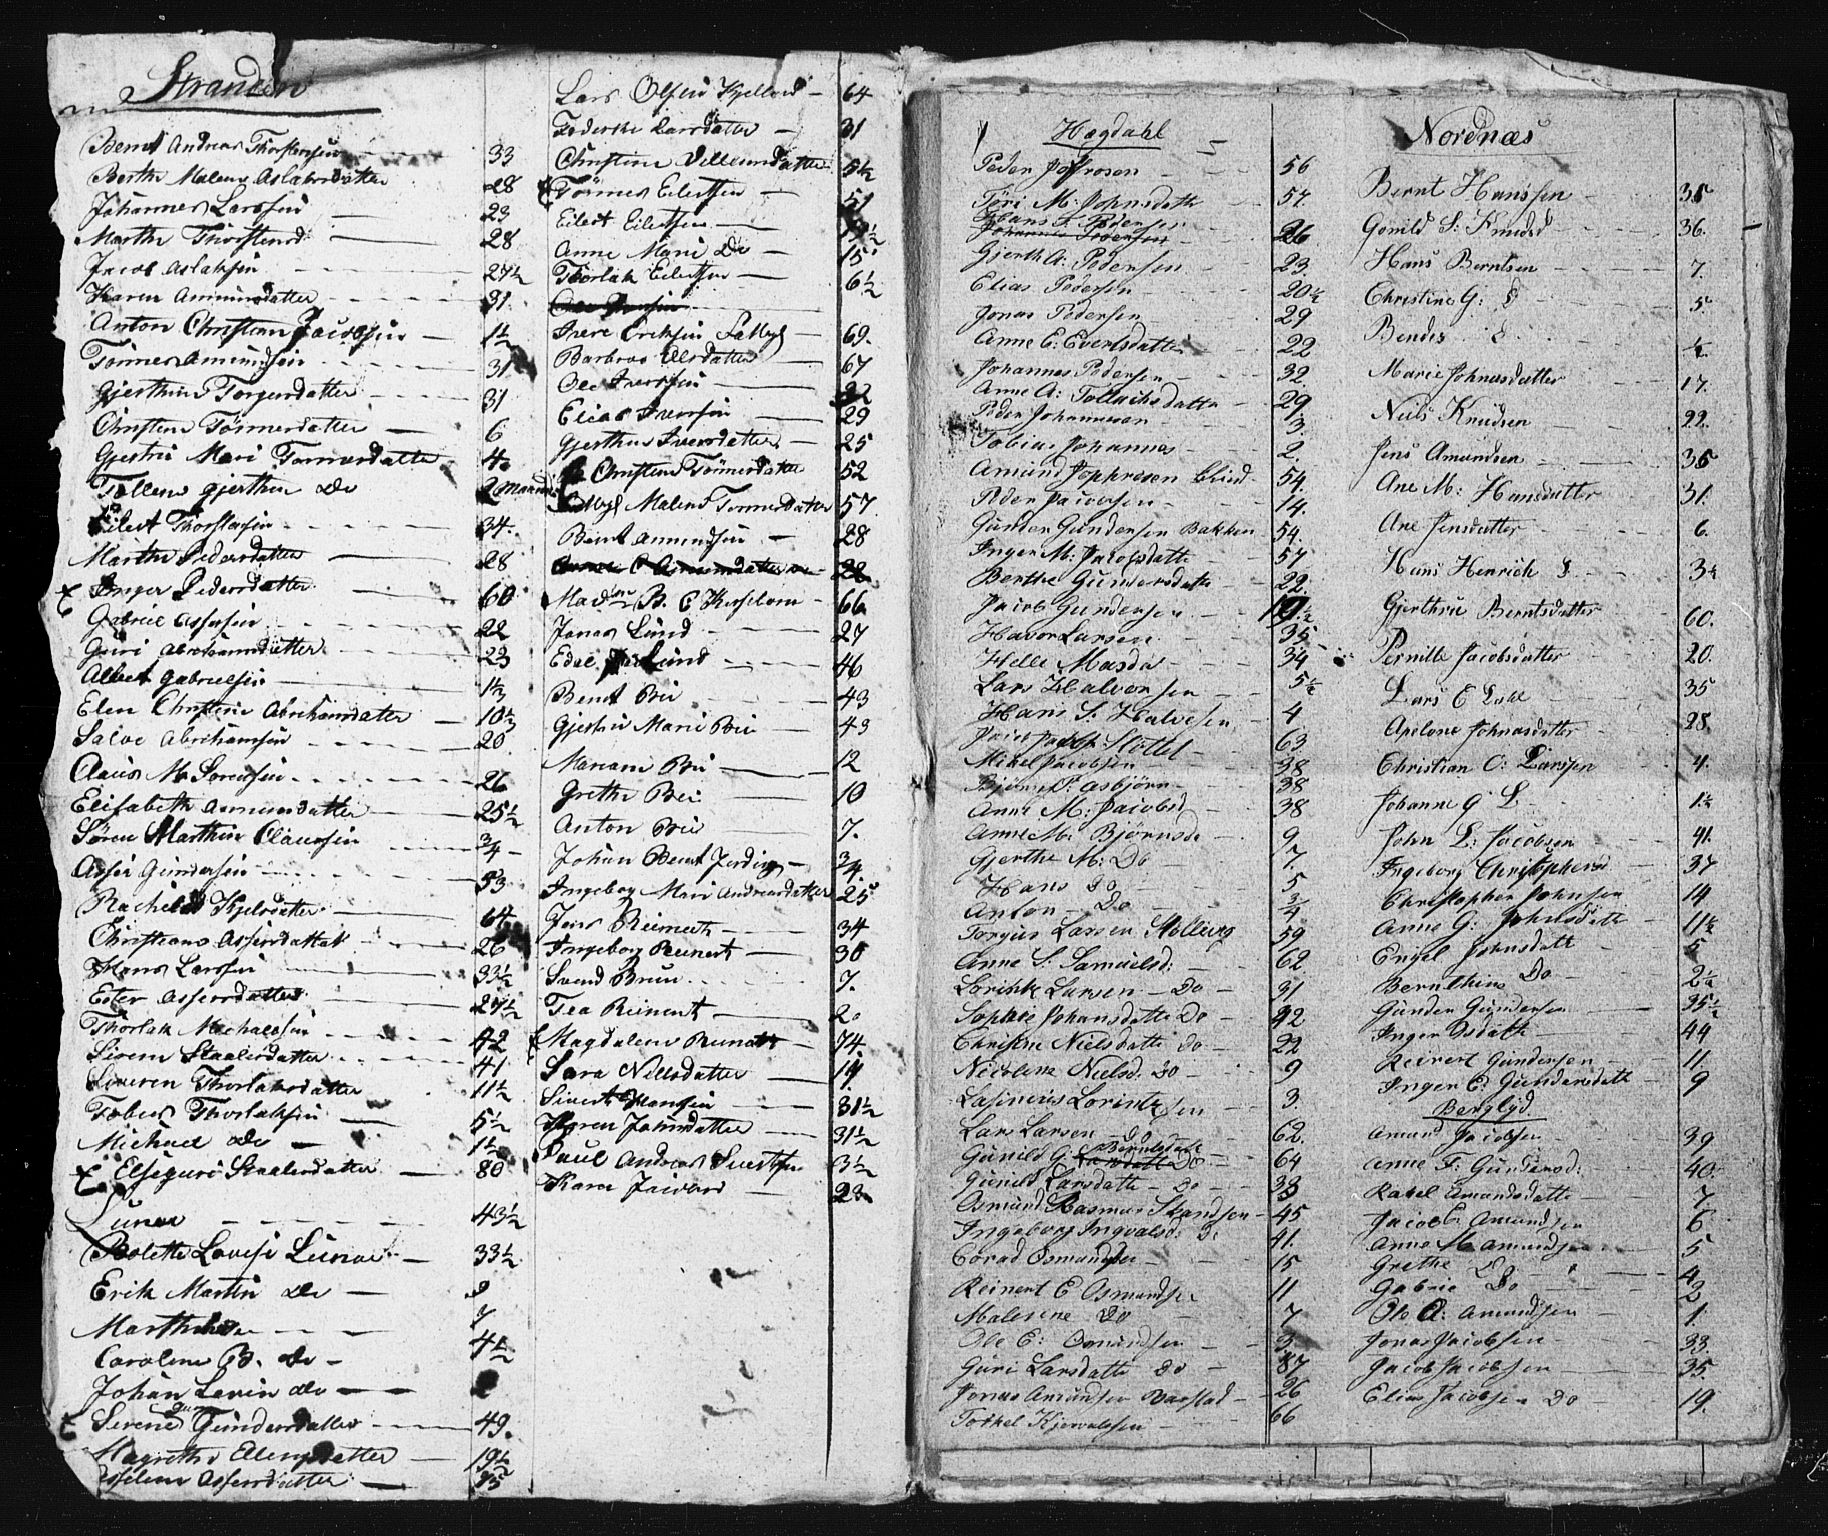 Stranden
Bernt Andreas Thorstensen 33
Berthe Malene Aslaksdatter 28
Johannes Larssen 23
Marthe Thorstensd 28
Jacob Aslaksen 27½
Karen Amunsdatter 31
Anton Christian Jacobsen 1½
Tønnes Amundsen 31
Gjerthru Torgersdatter 31
Christine Tønnesdatter 6
Gjertru Mari Tønnesdatter 4
Gjerthru do 2 Maaned
Eilert Thorstensen 34.
Marthe Pedersdatter 28
Inger Pedersdatter 60
Gabriel Assersen 22
Guri Abrahamsdatter 23
Albert Gabrielsen 1½
Elen Christine Abrahamsdatter 10½
Salve Abrahamsen 20
Claus M Sørensen 26
Elisabeth Amundsdatter 25½
Søren Marthin Claussen ¾
Asser Gundersen 53
Rachel Kjelsdatter 64
Christiane Assersdatter 26
Hans Larssen 33½
Ester Assersdatter 27½
Thorlak Michaelsen 42
Siren Staalesdatter 41
Lovren Thorlaksdatter 11½
Tobias Thorlaksen 5½
Michael do 1½
Elseguri Staalesdatter 80
Lunøe 43½
Bolette Lovise Lunøe 33½
Erik Martin do 9
Marthe 7
Caroline B. do 4½
Johan Levin do
Serene Gundersdatter 49.
Magrethe Ellingsdatter 19½
Assersdatter 75
Lars Olsen Kjelland 64
Federike Larsdatter 31
Christine Villumsdatter 54½
Tønnes Eilertsen 51
Eilert Eilertsen
Anne Mari Do 15
Thorlak Eilertsen 6½
Iver Eriksen Fattig 69.
Barbroe Elisdatter 67
Ole Iversen 32
Elias Iversen 29
Gjerthru Iversdatter 25
Christine Tønnesdatter 52
Malene Tønnesdatter 57
Bernt Amundsen 28
Madme B. C 66
Jonas Lund 27
Edel Lund 46
Bernt Bri 43
Gjertru Marie Bri 43
Mariane Bri 12
Grethe Bri 10
Anton Bri 7.
Johan Bernt ¾
Ingeborg Mari Andreasdatter 25
Jens Reinert 34
Ingeborg Reinert 30
Svend Brun 7.
Tea Reinert 2
Magdalene Reinert 74
Sara Nilsdatter 19
Sivert Hansen 31½
Karen Johnsdatter 31½
Paul Andreas Sivertsen 3½
Karen Jacobsd 23
Hægdahl
Peder Joffrosen 56
Tøri M. Johnsdatte 57.
Hans S. Pedersen
Johannes Pedersen 26
Gjerth A: Pedersen 23.
Elias Pedersen 20½
Jonas Pedersen 29
Anne E: Evertsdatte 22
Johannes Pedersen 32.
Anne A: Tollachsdatte 29
Peder Johannesen 3
Tobias Johannes 2.
Amund Jophresen blind 54.
Peder Jacobsen 14.
Gunder Gundersen Bakken 54.
Inger M: Jacobsdatte 57
Berthe Gundersdatte 22.
Jacob Gundersen
Havor Larsen 35
Helle Masda 34
Lars Halvorsen 5½
Hans S. Halvorsen 4
Jacob Slottet 63
Mikel Jacobsen 38
Bjørn Asbjørn 38
Anne M: Jacobsd 38
Anne M: Bjørnsd 9
Gjerthe M: Do 7.
Hans Do 5
Anton Do ¾
Torgius Larsen Mølleug 59
Anne S: Samuelsd: 62.
Lorintz Larsen Do 31
Sophie Johansdatte Do 42
Christine Nielsdatte Do 22
Nicoline Nielsd: Do 9
Casinius Lorintzsen 3.
Lars Larsen Do 62.
Gunild G: Berntsdatte Do 64
Gunild Larsdatte Do 33
Osmund Rasmus Skandsen 45
Ingeborg Ingvalsd: Do 41.
Conrad Osmundsen 15
Reinert E Osmundsen 11
Malesene Do 7
Ole E: Osmundsen 3.
Guri Larsdatte Do 87
Jonas Amundsen 26
Torkel Kjerulssen 66
Nordnæs
Bernt Hanssen 35
Gonild S: Knudsd 36.
Hans Berntsen 7.
Christine G: D 5
Bendix ½
Marie Johnasdatter 17.
Niels Knudsen 22.
Jens Amundsen 35
Ane M: Hansdatter 31.
Ane Jensdatter 6.
Hans Henrich D
Gjerthrue Berntsdatter 60.
Pernille Jacobsdatter 20.
Lars E 35
Apelone Johnasdatter 28.
Christian O: Larssen 4.
Johanne G L 1½
John L: Jacobsen 41.
Ingeborg Christophersd 37
Christopher Johnsen 14
Anne G: Johnsdatte 11½
Engel Johnsdatte 5
Bernthine Do 2¼
Gunder Gundersen 35½
Inger Osdatte 44
Reinert Gundersen 11
Inger E: Gundersdatte 9
Berglyd
Amund Jacobsen 39
Anne F: Gundersd: 40.
Rakel Amundsdatte 7
Jacob E Amundsen 6
Anne M Amundsen 5
Grethe Do 4
Gabriel Do 2
Ole A: Amundsen 1.
Jonas Jacobsen 33.
Jacob Jacobsen 35.
Elias Jacobsen Do 19.